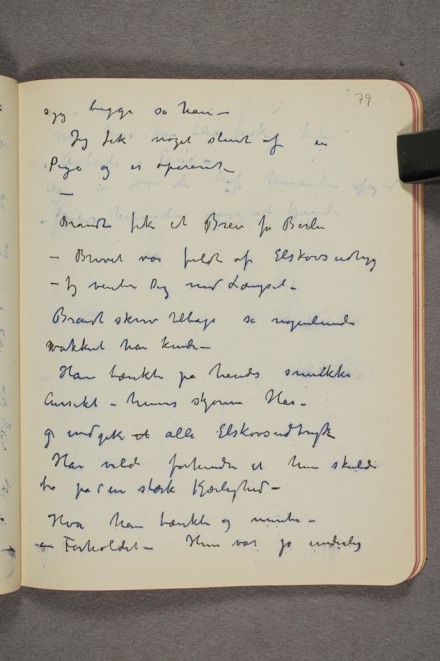 79
ogg begge sa han –
Jeg fik noget slemt af en
Pige og er opereret –
–
Brandt fik et Brev fra Berlin
– Brevet var fuldt af Elskovsudtryg
– Jeg venter Dig med Længsel –
Brandt skrev tilbage sa nogenlunde
vakkert han kunde –
Han tænkte pa hendes smukke
Ansikt – hennes skjønne Har –
og undgik alle Elskovsudtryk
Han vilde forhindre at hun skulde
tro pa en stærk Kjærlighed –
Hva han tænkte og mente –
om Forholdet – Hun var jo underlig